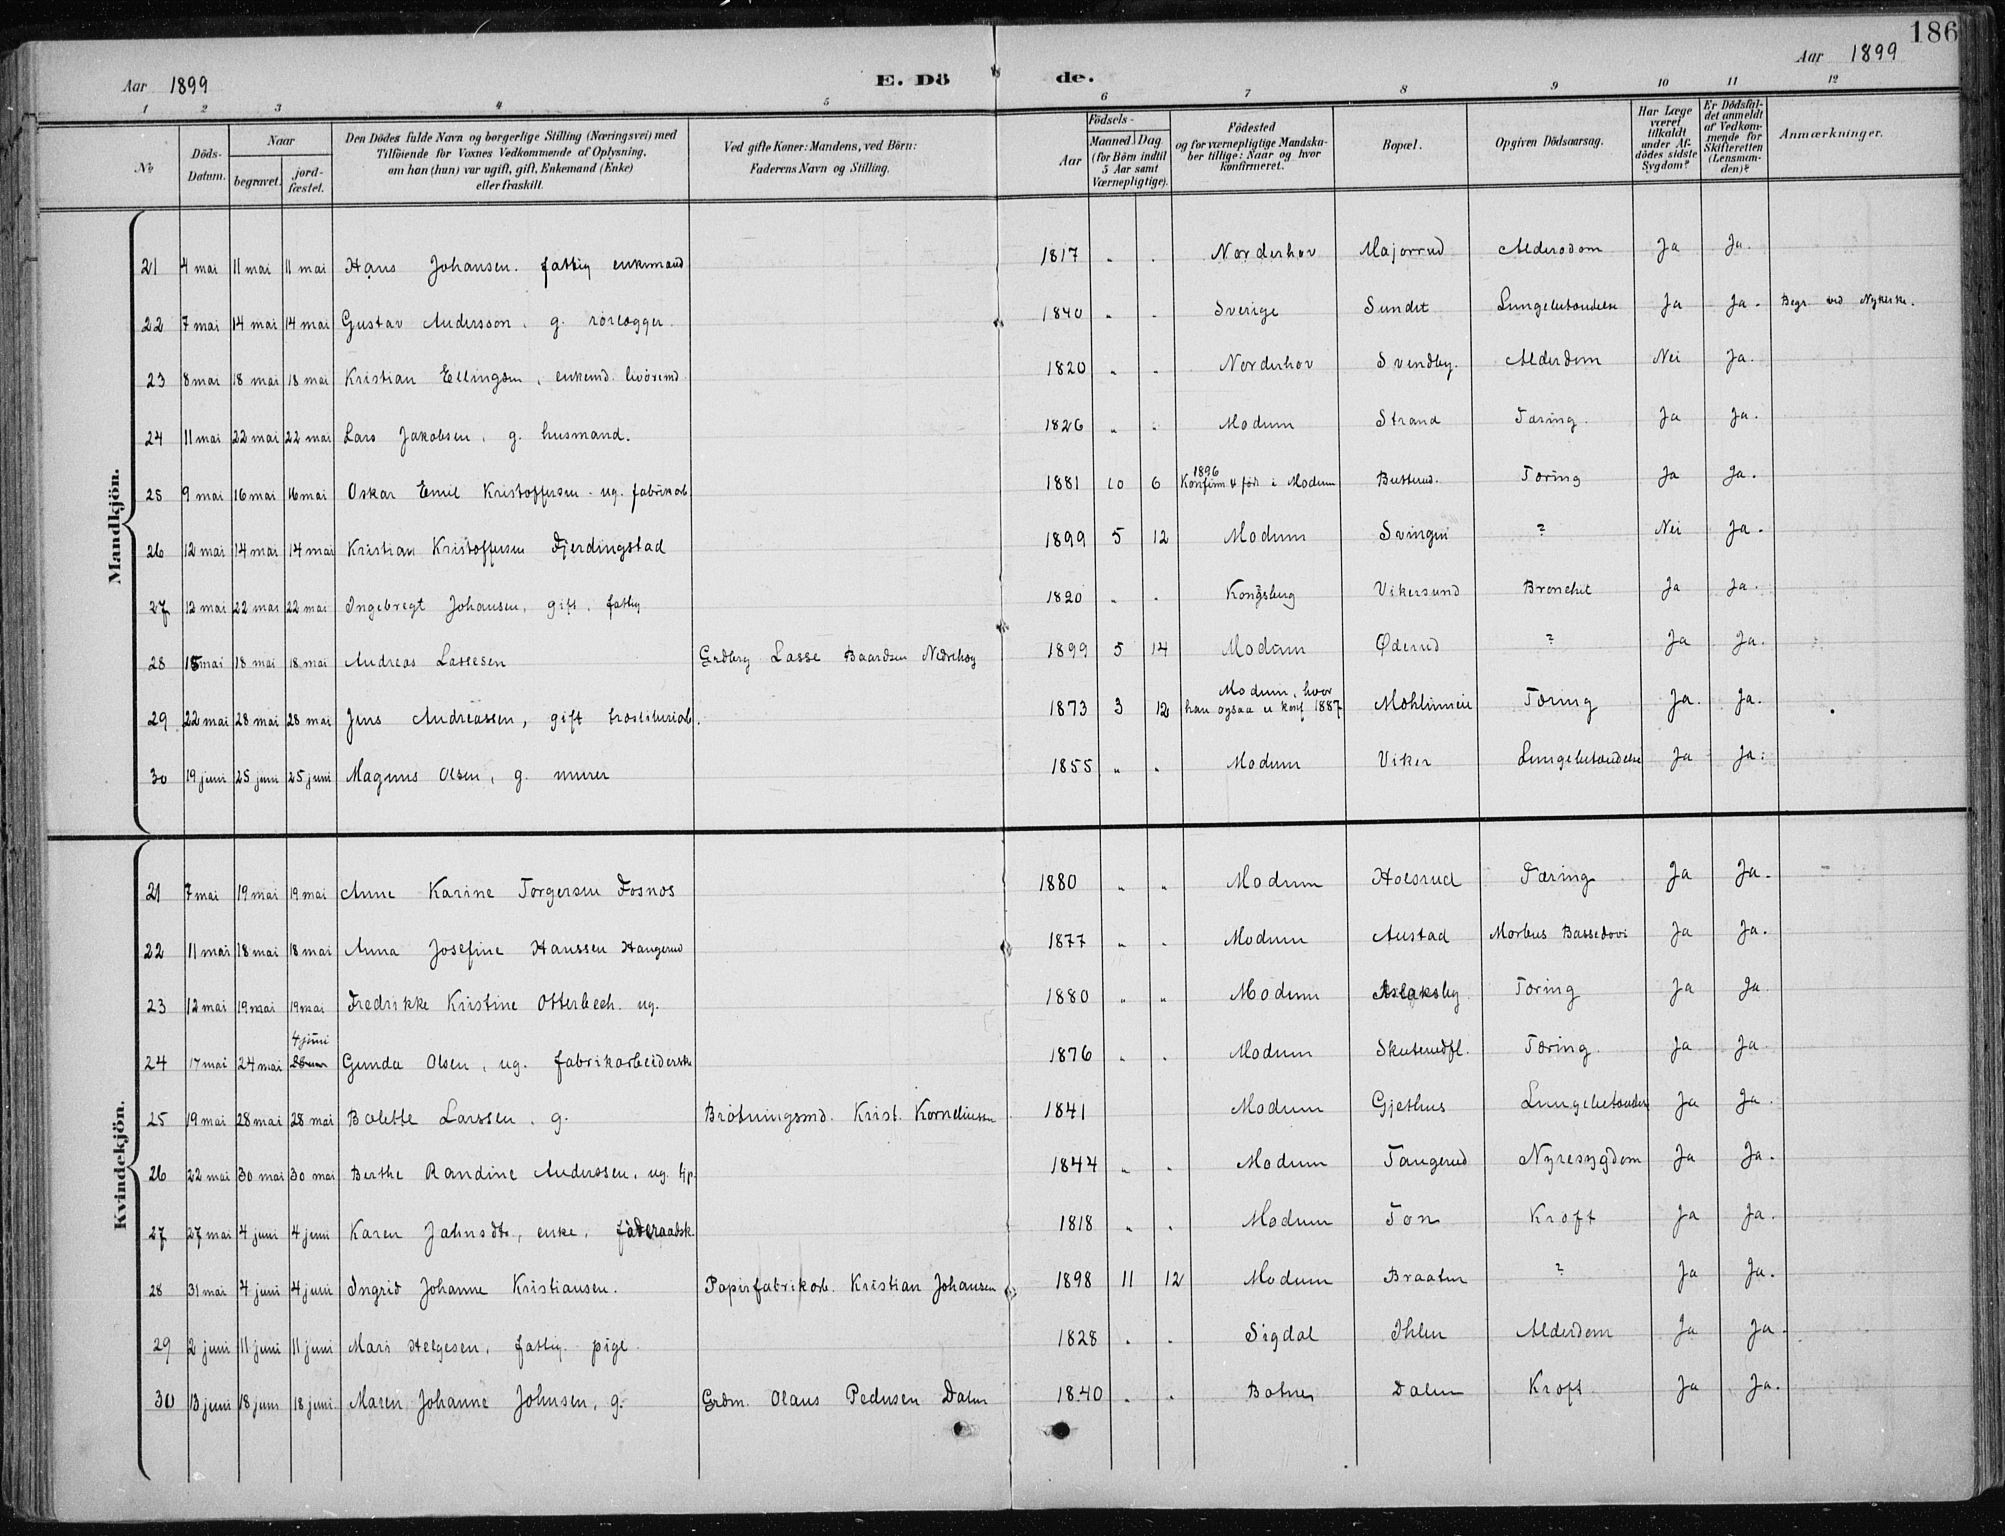 186
Aar 1899 E. Dö de. Aar 1899
1 2 3 4 5 6 7 8 9 10 11 12
No
Döds-Datum.
Naar
begravet.
jord-fæstet.
Den Dödes fulde Navn og borgerlige Stilling (Næringsvei) med
Tilföiende for Voxnes Vedkommende af Oplysning,
om han (hun) var ugift, gift, Enkemand (Enke)
eller fraskilt.
Ved gifte Koner: Mandens, ved Börn:
Faderens Navn og Stilling.
Födsels-
Aar
Maaned. Dag
(for Börn indtil
5 Aar samt
Værnepligtige).
Födested
og for værnepligtige Mandska-
ber tillige: Naar og hvor
konfirmeret.
Bopæl.
Opgiven Dödsaarsag.
Har Læge
været
tilkaldt
under Af-
dödes sidste
Sygdom?
Er Dödsfal-
det anmeldt
af Vedkom-
mende for
Skifteretten
(Lensman-
den)?
Anmærkninger.
Mandkjön.
21 4 mai 11 mai 11 mai Hans Johansen. fattig enkemand 1817 " " Norderhov Majorrud Alderdom Ja Ja.
22 7 mai 14 mai 14 mai Gustav Andersson, g. rörlægger. 1840 " " Sverige Sundet Lungebetændelse Ja Ja. Begr. ved Nykirke.
23 8 mai 18 mai 18 mai Kristian Ellingsen, enkemd. 1820 " " Norderhov Svendby. Alderdom Nei Ja.
24 11 mai 22 mai 22 mai Lars Jakobsen, g. husmand. 1826 " " Modum Strand Tæring. Ja Ja.
25 9 mai 16 mai 16 mai Oskar Emil Kristoffersen. ug. fabrikarb 1881 10 6 1896 Konfirm & föd i Modum Butterud. Tæring Ja Ja.
26 12 mai 14 mai 14 mai Kristian Kristoffersen Fjerdingstad 1899 5 12 Modum Svingen ? Nei Ja.
27 12 mai 22 mai 22 mai Ingebregt Johansen, gift, fattig 1820 " " Kongsberg Vikersund Bronchit Ja Ja.
28 15 mai 18 mai 18 mai Andreas Lassesen Grdbrg Lasse Baardsen Nedrehog 1899 5 14 Modum Øderud ? Ja Ja.
29 22 mai 28 mai 28 mai Jens Andreassen, gift træsliberiarb. 1873 3 12 Modum, hvor han ogsaa er konf 1887 Mæhlumeie Tæring Ja. Ja.
30 19 juni 25 juni 25 juni Magnus Olsen, g. murer 1855 " " Modum Viker Lungebetændelse Ja Ja.
Kvindekjön.
21 7 mai 19 mai 19 mai Anne Karine Torgersen Fosnos 1880 " " Modum Holsrud Tæring Ja Ja.
22 11 mai 18 mai 18 mai Anna Josefine Hanssen Haugerud 1877 " " Modum Austad Morbus Bassedovi Ja Ja.
23 12 mai 19 mai 19 mai Fredrikke Kristine Otterbech. ug. 1880 " " Modum Aslaksby Tæring Ja Ja
24 17 mai 24 mai 4 juni Gunda Olsen, ug. fabrikarbeiderske 1876 " " Modum Skuterudfl. Tæring. Ja Ja
25 19 mai 28 mai 28 mai Bolette Larssen, g. Brötningsmd. Krist. Korneliusen 1841 Modum Gjethus Lungebetændelse Ja Ja.
26 22 mai 30 mai 30 mai Berthe Randine Anderssen, ug. tjp. 1844 " " Modum Tangerud Nyresygdom Ja Ja.
27 27 mai 4 juni 4 juni Karen Jahnsdtr, enke, föderaadsk. 1818 " " Modum Ton Kræft Ja Ja.
28 31 mai 4 juni 4 juni Ingrid Johanne Kristiansen. Papirfabrikarb. Kristian Johansen 1898 11 12 Modum Braaten ? Ja Ja.
29 2 juni 11 juni 11 juni Mari Helgesen, fattig. pige. 1828 " " Sigdal Ihlen Alderdom Ja Ja.
30 13 juni 18 juni 18 juni Maren Johanne Johnsen, g. Grdm. Olaus Pedersen Dalen 1840 " " Botner Dalen Kræft Ja Ja.